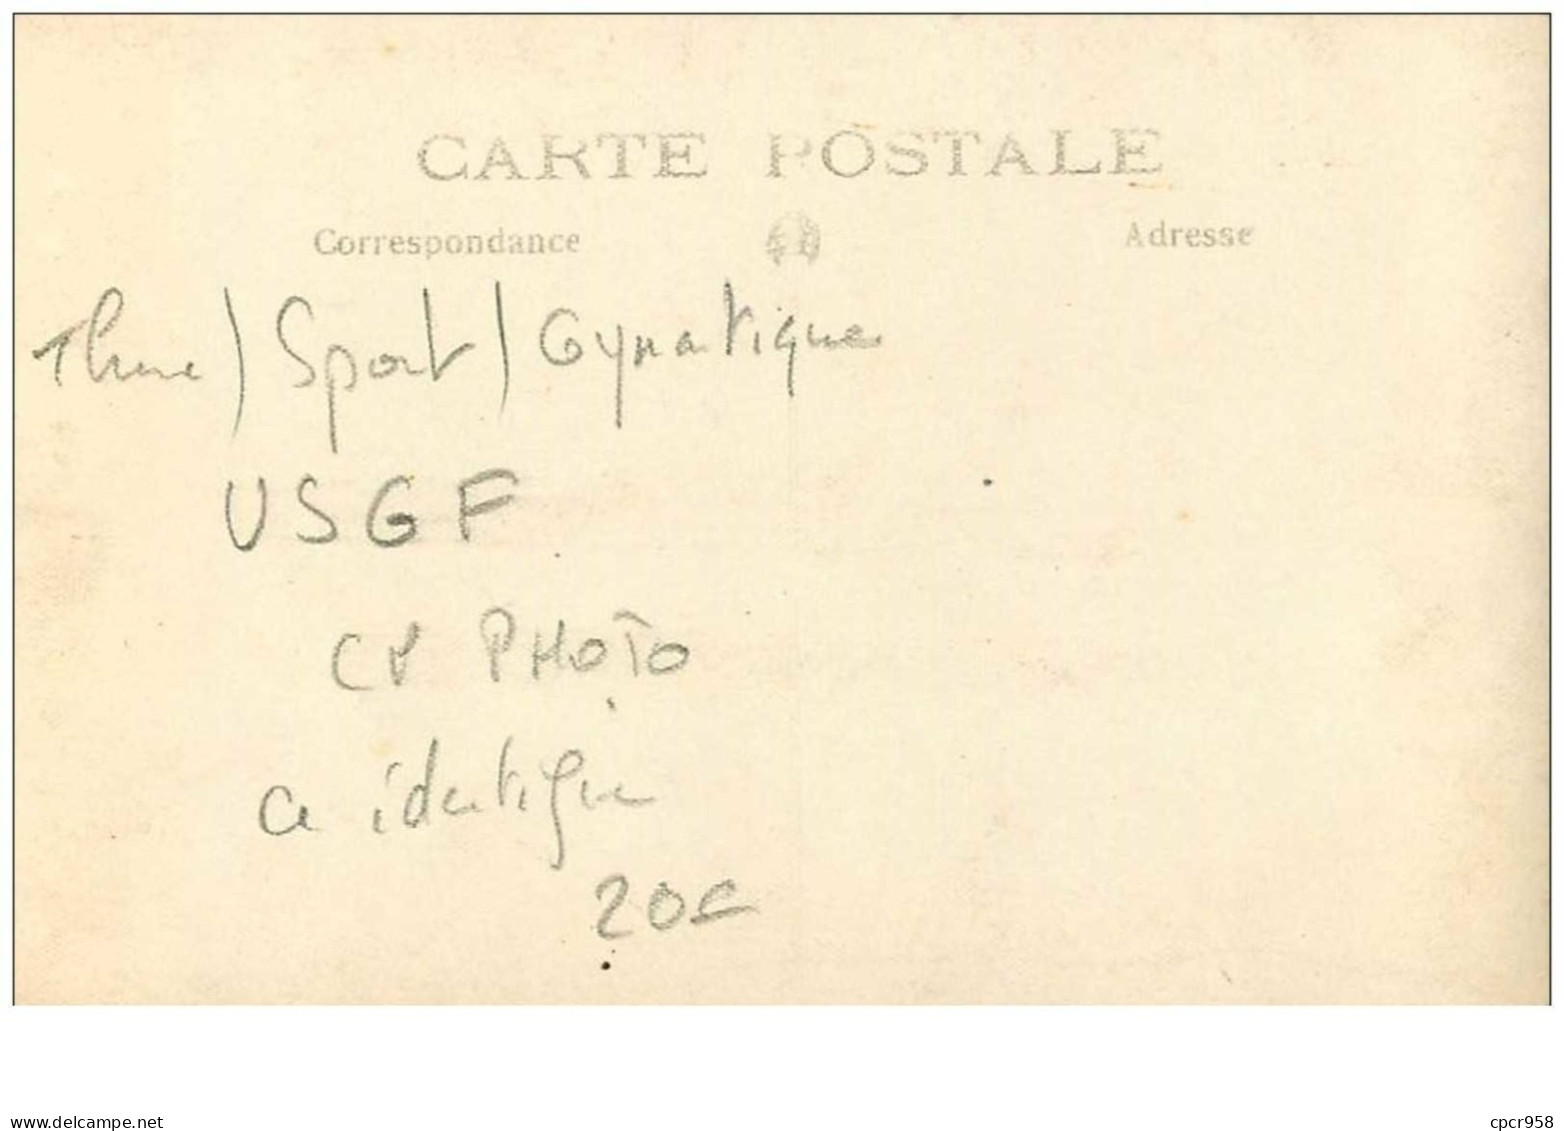 CARTE POSTALE
Correspondance Adresse
Thme / Sport / Gynatique
USGF
CP PHOTO
identique
20€
www.delcampe.net cpcr958